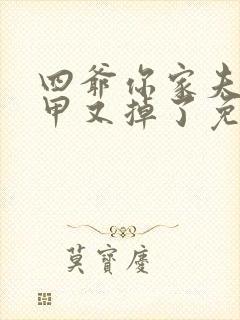 四爷你家夫
甲又掉了免
莫寶慶